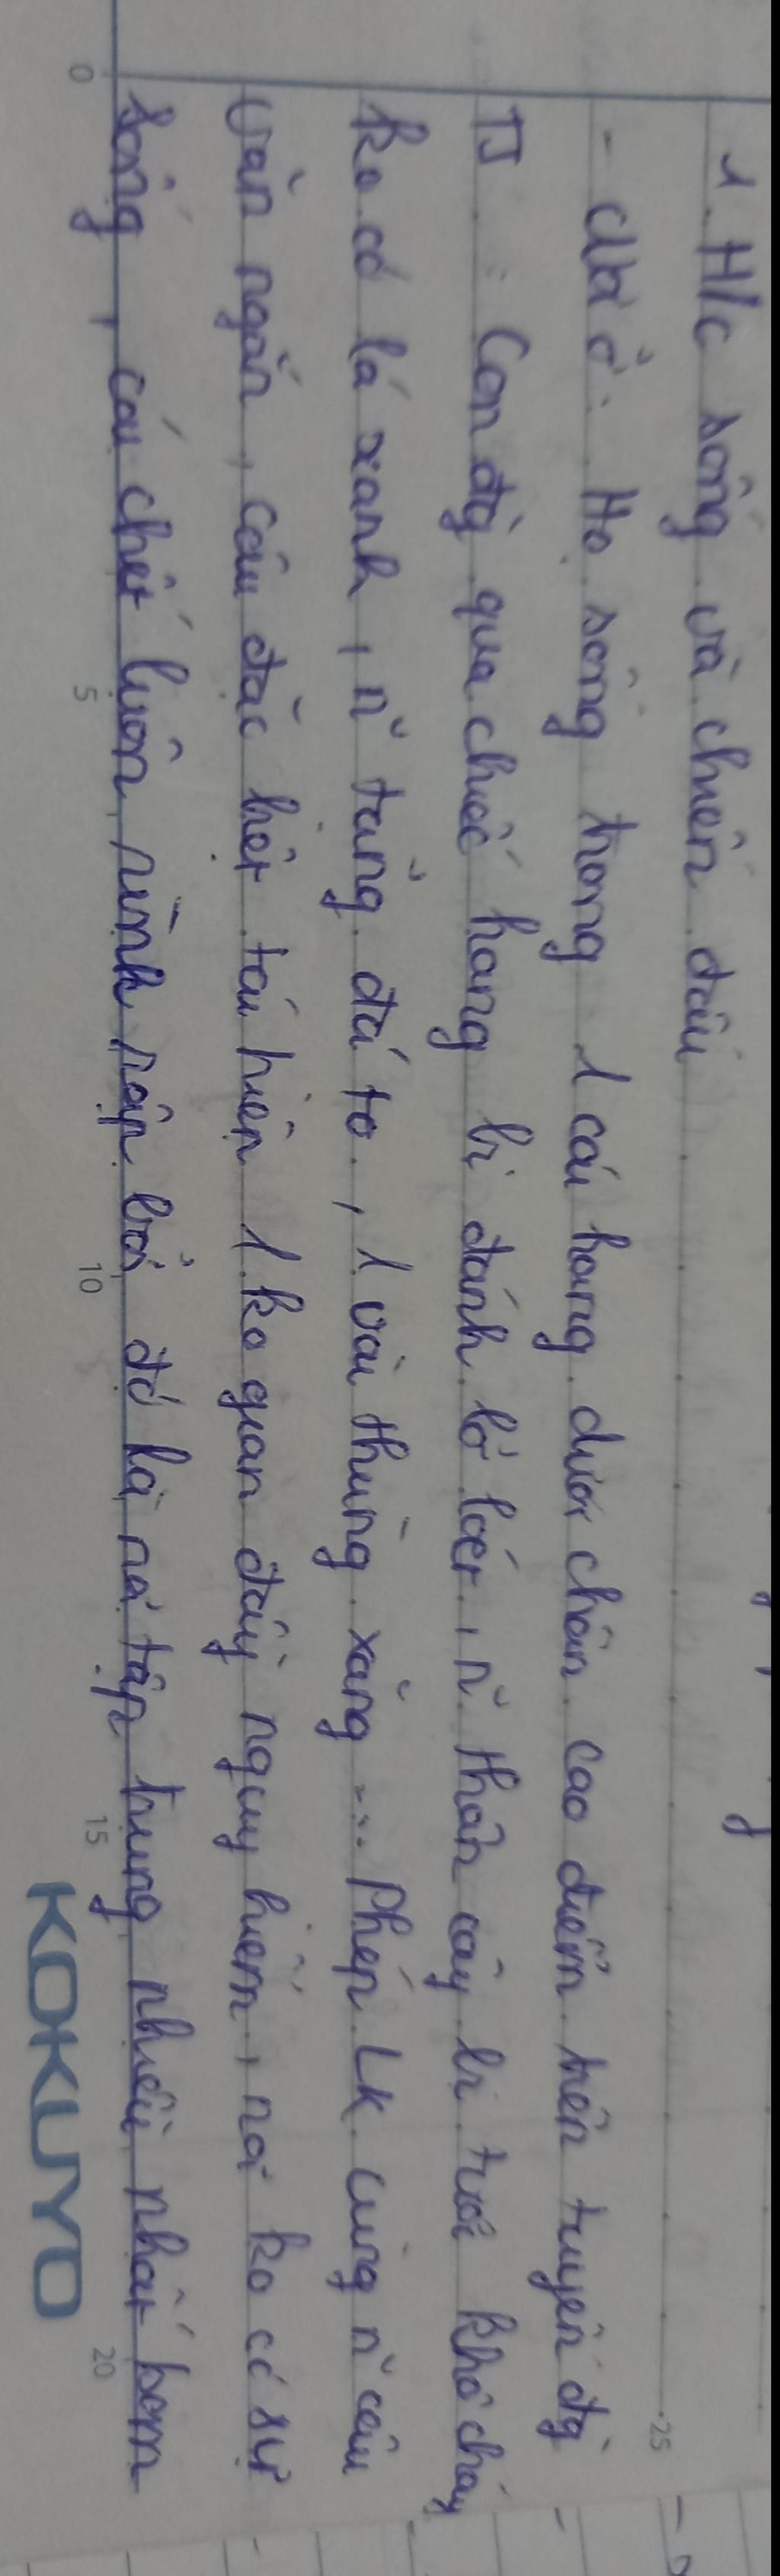 1. H/c sống và chiến đấu
- Chỗ ở: Họ sống trong 1 cái hang dưới chân cao điểm trên tuyến đg
TS: Con đg qua chiếc hang bị đánh lở loét, n~ thân cây bị tước khô cháy
ko có lá xanh, n~ tảng đá to, 1 vài thùng xăng .... Phép LK cùng n~ câu
văn ngắn, câu đặc biệt tái hiện 1 ko gian đầy nguy hiểm, nơi ko có sự
sống, cái chết luôn rình rập bởi đó là nơi tập trung nhiều nhất bom
0 5 10 15 20 25
KOKUYO